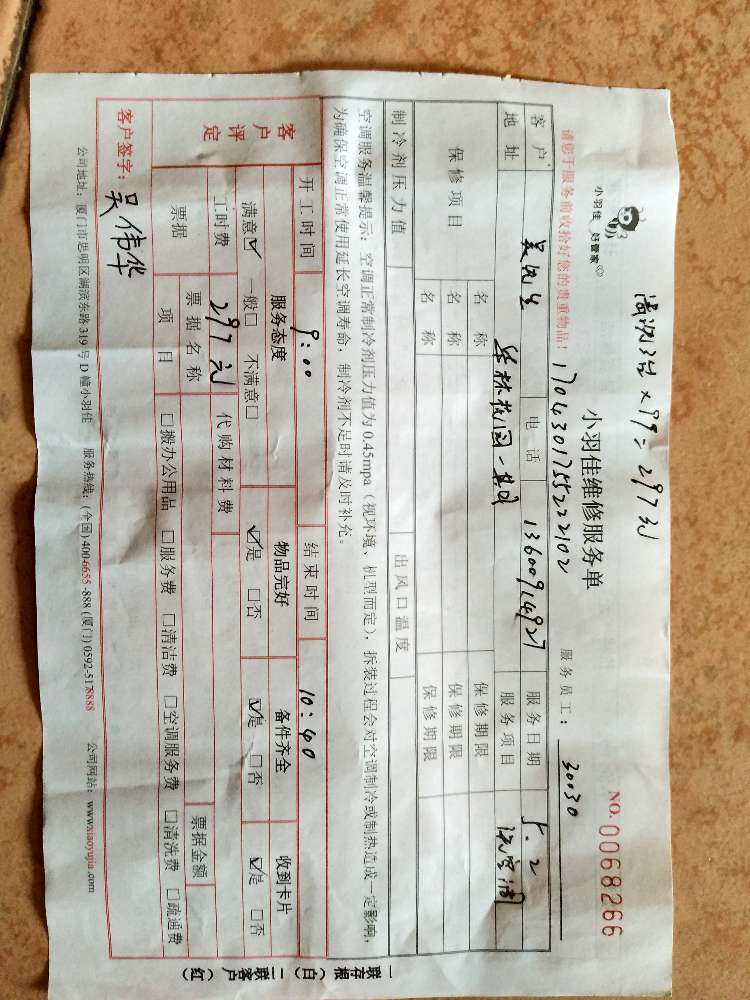 清洗3台×99=297元
小羽佳 好管家
小羽佳维修服务单
NO.0068266
请您于服务前收拾好您的贵重物品！
17043017555222102
服务员工：30030
客户 吴先生 电话 13600914927 服务日期 5.2
地址 华林花园一期 服务项目 洗空调
保修项目 名称 保修期限
名称 保修期限
名称 保修期限
制冷剂压力值 出风口温度
空调服务温馨提示：空调正常制冷剂压力值为0.45mpa（视环境、机型而定），拆装过程会对空调制冷或制热造成一定影响，
为确保空调正常使用延长空调寿命，制冷剂不足时请及时补充。
客户评定 开工时间 9:00 结束时间 10:40
服务态度 物品完好 备件齐全 收到卡片
满意☑ 一般□ 不满意□ ☑是 □否 ☑是 □否 ☑是 □否
工时费 297元 代购材料费
票据 票据名称 票据金额
项目 □搬办公用品 □服务费 □清洁费 □空调服务费 □清洗费 □疏通费
客户签字：吴伟华
公司地址：厦门市思明区湖滨东路319号D幢小羽佳 服务热线：(全国)400-6655-888 (厦门)0592-5178888 公司网站：www.xiaoyujia.com
一联存根（白）二联客户（红）